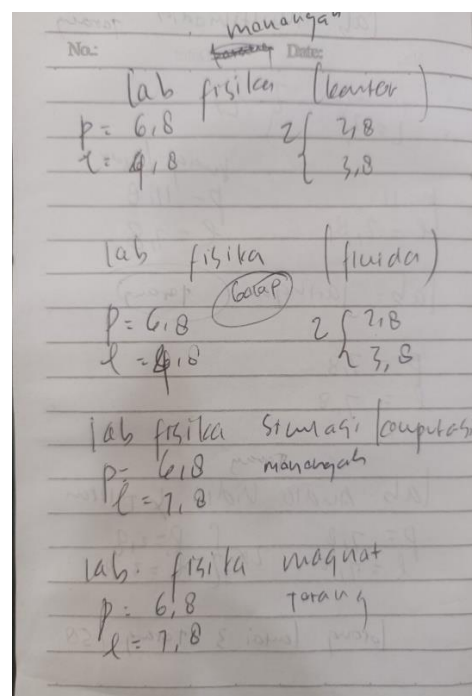 manangah
No.: Date:
lab fisika (kantor)
p = 6,8 2 { 2,8
l = 4,8 3,8
lab fisika (fluida)
Golap
p = 6,8 2 { 2,8
l = 4,8 3,8
lab fisika simulasi / computasi
p = 6,8 manangah
l = 7,8
lab. fisika magnat
p = 6,8 Torang
l = 7,8